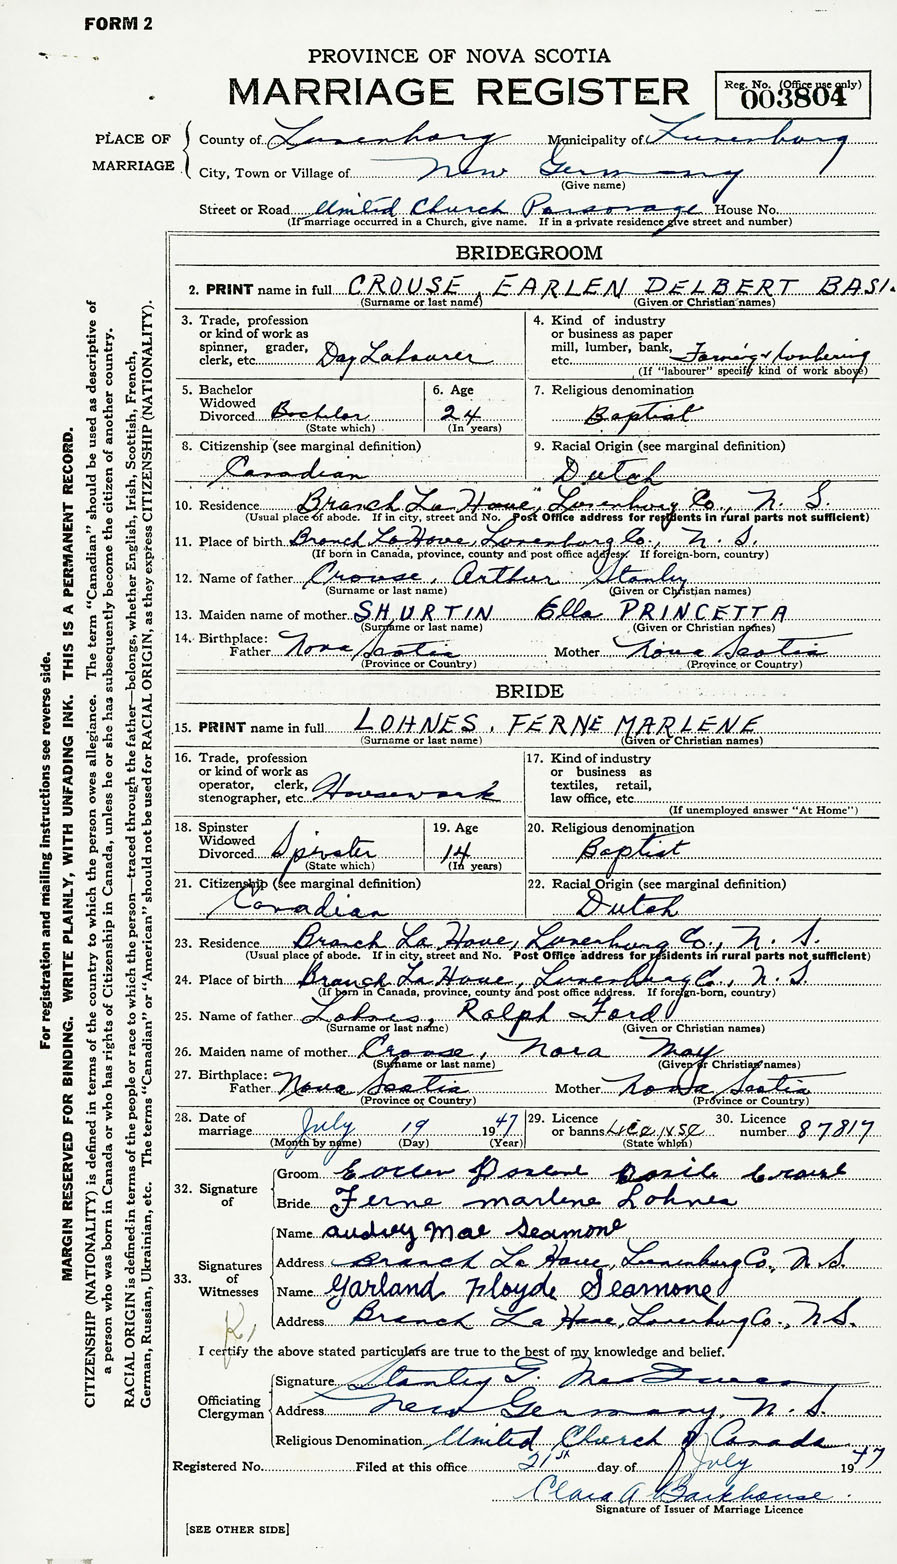 FORM 2
PROVINCE OF NOVA SCOTIA
MARRIAGE REGISTER
Reg. No. (Office use only)
003804
PLACE OF MARRIAGE
County of Lunenburg Municipality of Lunenburg
City, Town or Village of New Germany
(Give name)
Street or Road United Church Parsonage House No.
(If marriage occurred in a Church, give name. If in a private residence give street and number)
BRIDEGROOM
2. PRINT name in full CROUSE, EARLEN DELBERT BASI
(Surname or last name) (Given or Christian names)
3. Trade, profession or kind of work as spinner, grader, clerk, etc. Day Labourer
4. Kind of industry or business as paper mill, lumber, bank, etc. Farming & Lumbering
(If "labourer" specify kind of work above)
5. Bachelor Widowed Divorced Bachelor
(State which)
6. Age 24
(In years)
7. Religious denomination
Baptist
8. Citizenship (see marginal definition)
Canadian
9. Racial Origin (see marginal definition)
Dutch
10. Residence Branch La Have, Lunenburg Co., N. S.
(Usual place of abode. If in city, street and No. Post Office address for residents in rural parts not sufficient)
11. Place of birth Branch La Have, Lunenburg Co., N. S.
(If born in Canada, province, county and post office address. If foreign-born, country)
12. Name of father Crouse, Arthur Stanley
(Surname or last name) (Given or Christian names)
13. Maiden name of mother SHURTIN Ella PRINCETTA
(Surname or last name) (Given or Christian names)
14. Birthplace: Father Nova Scotia Mother Nova Scotia
(Province or Country) (Province or Country)
BRIDE
15. PRINT name in full LOHNES, FERNE MARLENE
(Surname or last name) (Given or Christian names)
16. Trade, profession or kind of work as operator, clerk, stenographer, etc. Housework
17. Kind of industry or business as textiles, retail, law office, etc.
(If unemployed answer "At Home")
18. Spinster Widowed Divorced Spinster
(State which)
19. Age 14
(In years)
20. Religious denomination
Baptist
21. Citizenship (see marginal definition)
Canadian
22. Racial Origin (see marginal definition)
Dutch
23. Residence Branch La Have, Lunenburg Co., N. S.
(Usual place of abode. If in city, street and No. Post Office address for residents in rural parts not sufficient)
24. Place of birth Branch La Have, Lunenburg Co., N. S.
(If born in Canada, province, county and post office address. If foreign-born, country)
25. Name of father Lohnes, Ralph Ford
(Surname or last name) (Given or Christian names)
26. Maiden name of mother Crouse, Nora May
(Surname or last name) (Given or Christian names)
27. Birthplace: Father Nova Scotia Mother Nova Scotia
(Province or Country) (Province or Country)
28. Date of marriage July 19 1947
(Month by name) (Day) (Year)
29. Licence or banns License
(State which)
30. Licence number 87817
32. Signature of
Groom Crouse
Bride Ferne Marlene Lohnes
33. Signatures of Witnesses
Name Audrey Mae Seamone
Address Branch La Have, Lunenburg Co., N.S.
Name Garland Floyde Seamone
Address Branch La Have, Lunenburg Co., N.S.
I certify the above stated particulars are true to the best of my knowledge and belief.
Officiating Clergyman
Signature Stanley G.
Address New Germany, N.S.
Religious Denomination United Church of Canada
Registered No. Filed at this office 21st day of July 1947
Clara A Barkhouse
Signature of Issuer of Marriage Licence
[SEE OTHER SIDE]
For registration and mailing instructions see reverse side.
MARGIN RESERVED FOR BINDING. WRITE PLAINLY, WITH UNFADING INK. THIS IS A PERMANENT RECORD.
CITIZENSHIP (NATIONALITY) is defined in terms of the country to which the person owes allegiance. The term "Canadian" should be used as descriptive of
a person who was born in Canada or who has rights of Citizenship in Canada, unless he or she has subsequently become the citizen of another country.
RACIAL ORIGIN is defined in terms of the people or race to which the person—traced through the father—belongs, whether English, Irish, Scottish, French,
German, Russian, Ukrainian, etc. The terms "Canadian" or "American" should not be used for RACIAL ORIGIN, as they express CITIZENSHIP (NATIONALITY).